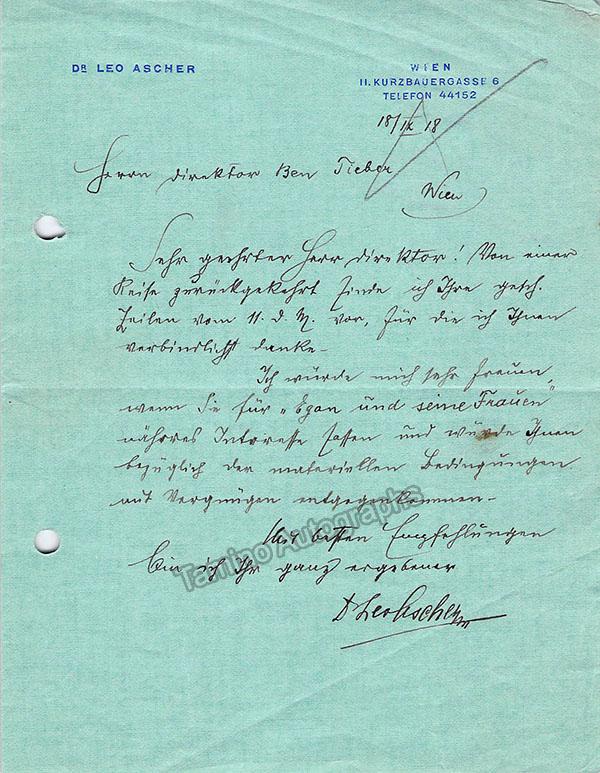 DR LEO ASCHER
WIEN
II. KURZBAUERGASSE 6
TELEFON 44152
18/IX 18
Herrn Direktor Ben Tieber
Wien
Sehr geehrter Herr Direktor! Von einer
Reise zurückgekehrt finde ich Ihre gesch.
Zeilen vom 11. d. M. vor, für die ich Ihnen
verbindlichst danke.
Ich würde mich sehr freuen,
wenn Sie für „Egon und seine Frauen"
näheres Interesse fassen und würde Ihnen
bezüglich der materiellen Bedingungen
mit Vergnügen entgegenkommen.
Mit besten Empfehlungen
bin ich Ihr ganz ergebener
Dr Leo Ascher
Tamino Autographs